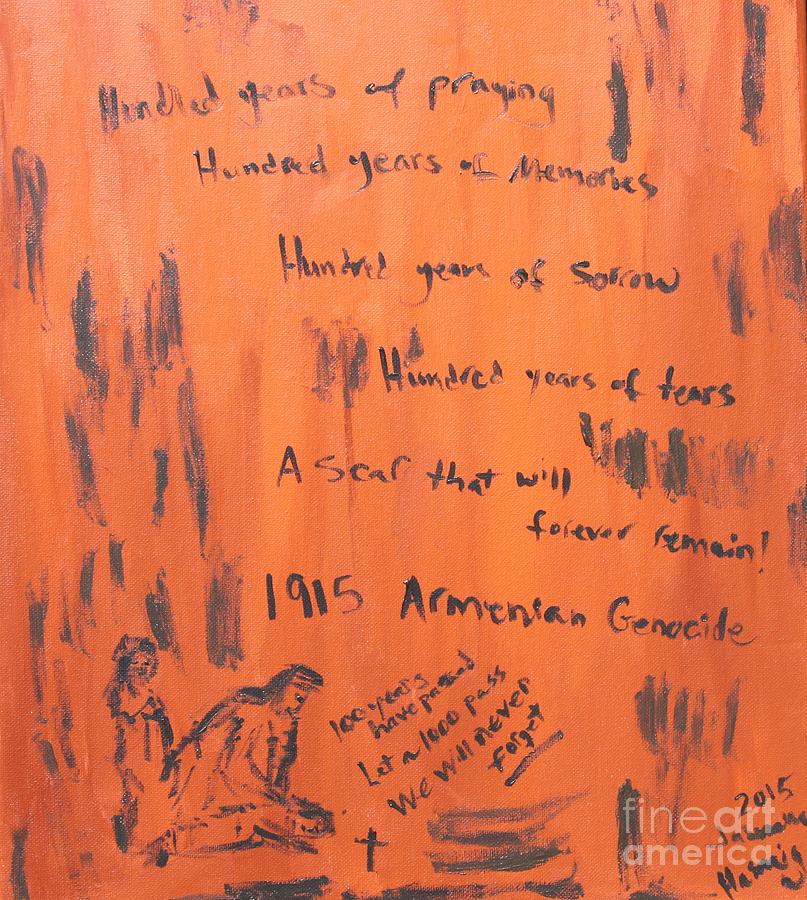 Hundred years of praying
Hundred years of Memories
Hundred years of Sorrow
Hundred years of tears
A scar that will
forever remain!
1915 Armenian Genocide
100 years
have passed
Let a 1000 pass
We will never
forget
2015
fine art
america